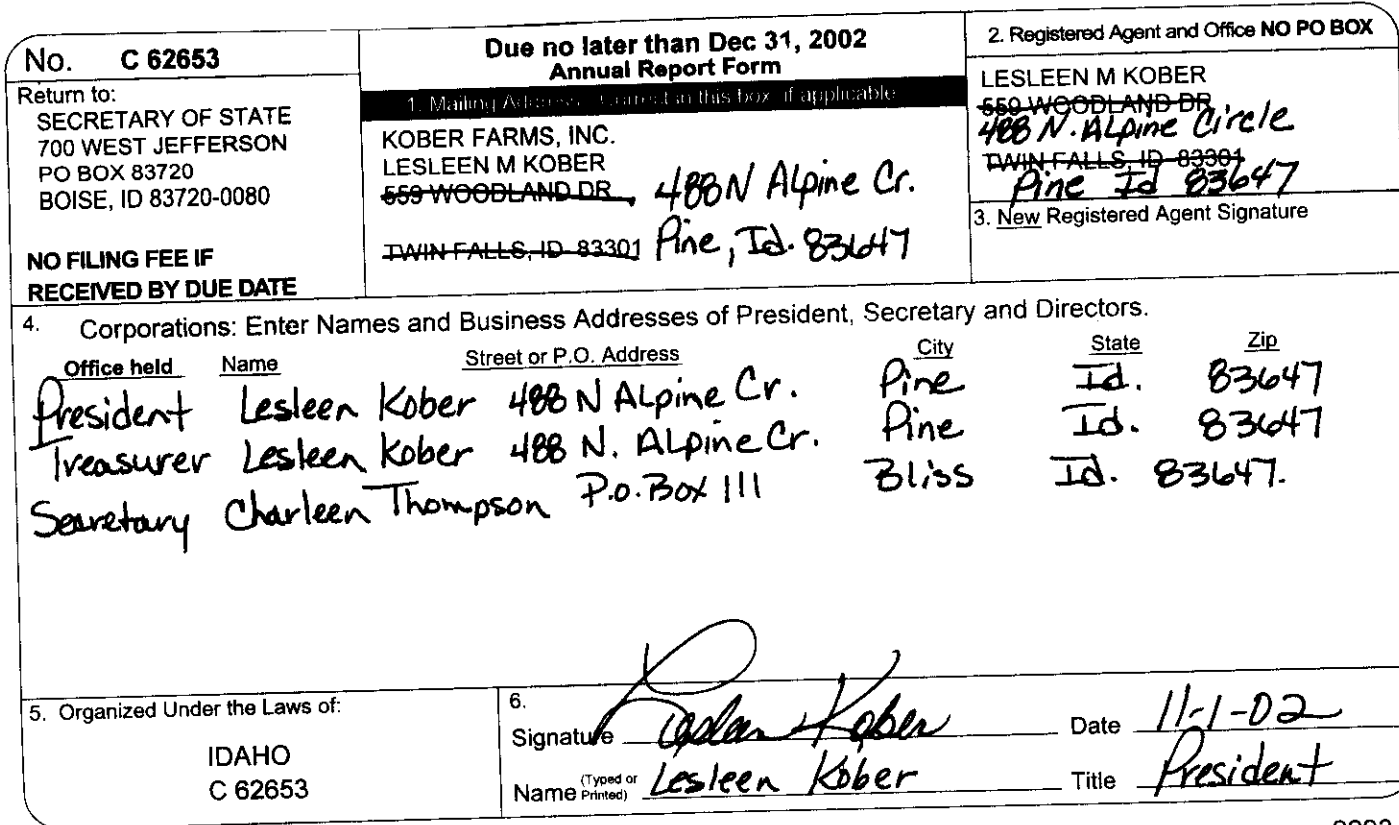 No. C 62653
Return to:
SECRETARY OF STATE
700 WEST JEFFERSON
PO BOX 83720
BOISE, ID 83720-0080
NO FILING FEE IF
RECEIVED BY DUE DATE
Due no later than Dec 31, 2002
Annual Report Form
1. Mailing Address: Correct in this box, if applicable
KOBER FARMS, INC.
LESLEEN M KOBER
559 WOODLAND DR 488 N Alpine Cr.
TWIN FALLS, ID 83301 Pine, Id. 83647
2. Registered Agent and Office NO PO BOX
LESLEEN M KOBER
559 WOODLAND DR
488 N. Alpine Circle
TWIN FALLS, ID 83301
Pine Id 83647
3. New Registered Agent Signature
4. Corporations: Enter Names and Business Addresses of President, Secretary and Directors.
Office held Name Street or P.O. Address City State Zip
President Lesleen Kober 488 N Alpine Cr. Pine Id. 83647
Treasurer Lesleen Kober 488 N. Alpine Cr. Pine Id. 83647
Secretary Charleen Thompson P.O. Box 111 Bliss Id. 83647.
5. Organized Under the Laws of:
IDAHO
C 62653
6.
Signature Lesleen Kober Date 11-1-02
Name (Typed or Printed) Lesleen Kober Title President